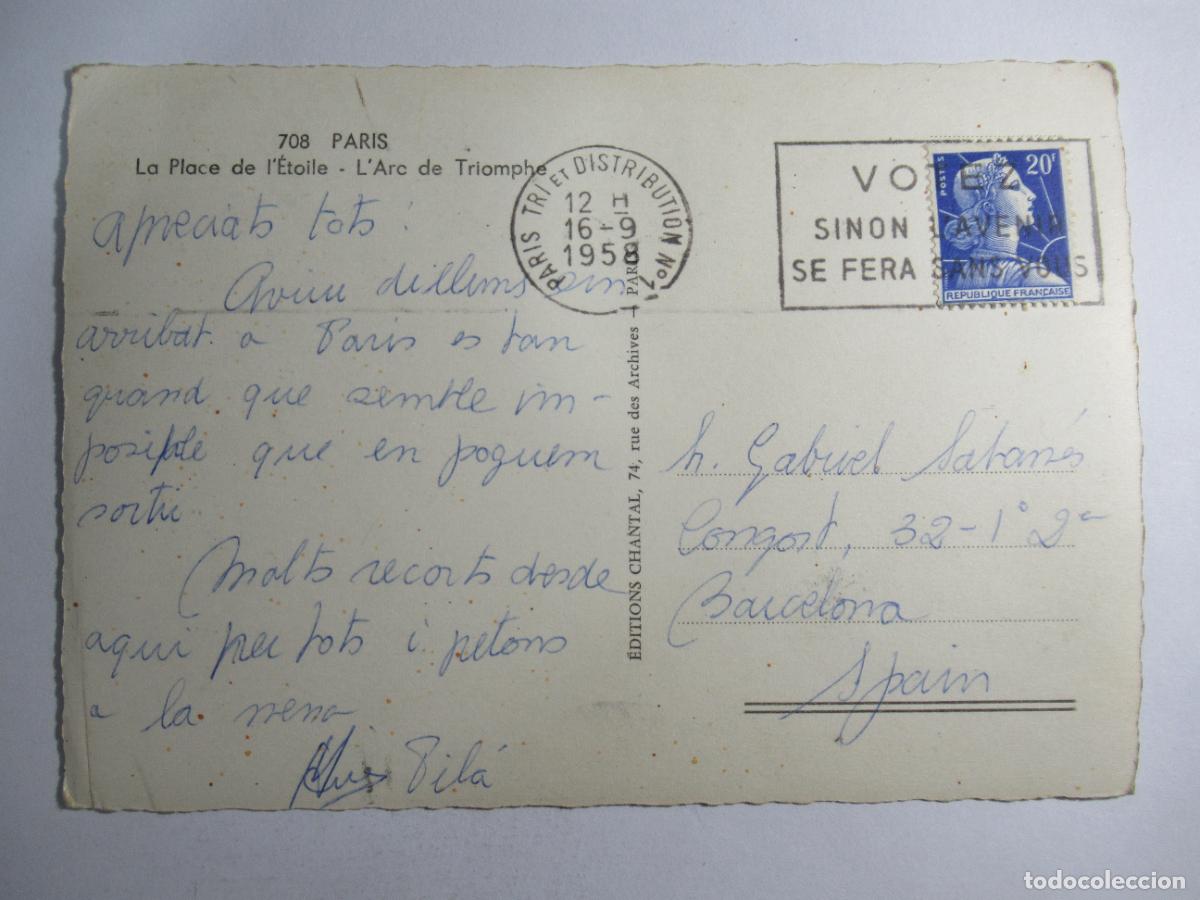 708 PARIS
La Place de l'Étoile - L'Arc de Triomphe
apreciats tots:
Avui dilluns
arribat a Paris es tan
grand que semble im-
posible que en poguem
sortir
Molts recorts desde
aqui per tots i petons
a la nena
Pilá
PARIS TRI ET DISTRIBUTION No
12 H
16-9
1958
VOTEZ
SINON L'AVENIR
SE FERA SANS VOUS
POSTES
20F
REPUBLIQUE FRANÇAISE
ÉDITIONS CHANTAL, 74, rue des Archives - PARIS
Gabriel Sabanés
Congost, 32-1º 2ª
Barcelona
Spain
todocoleccion